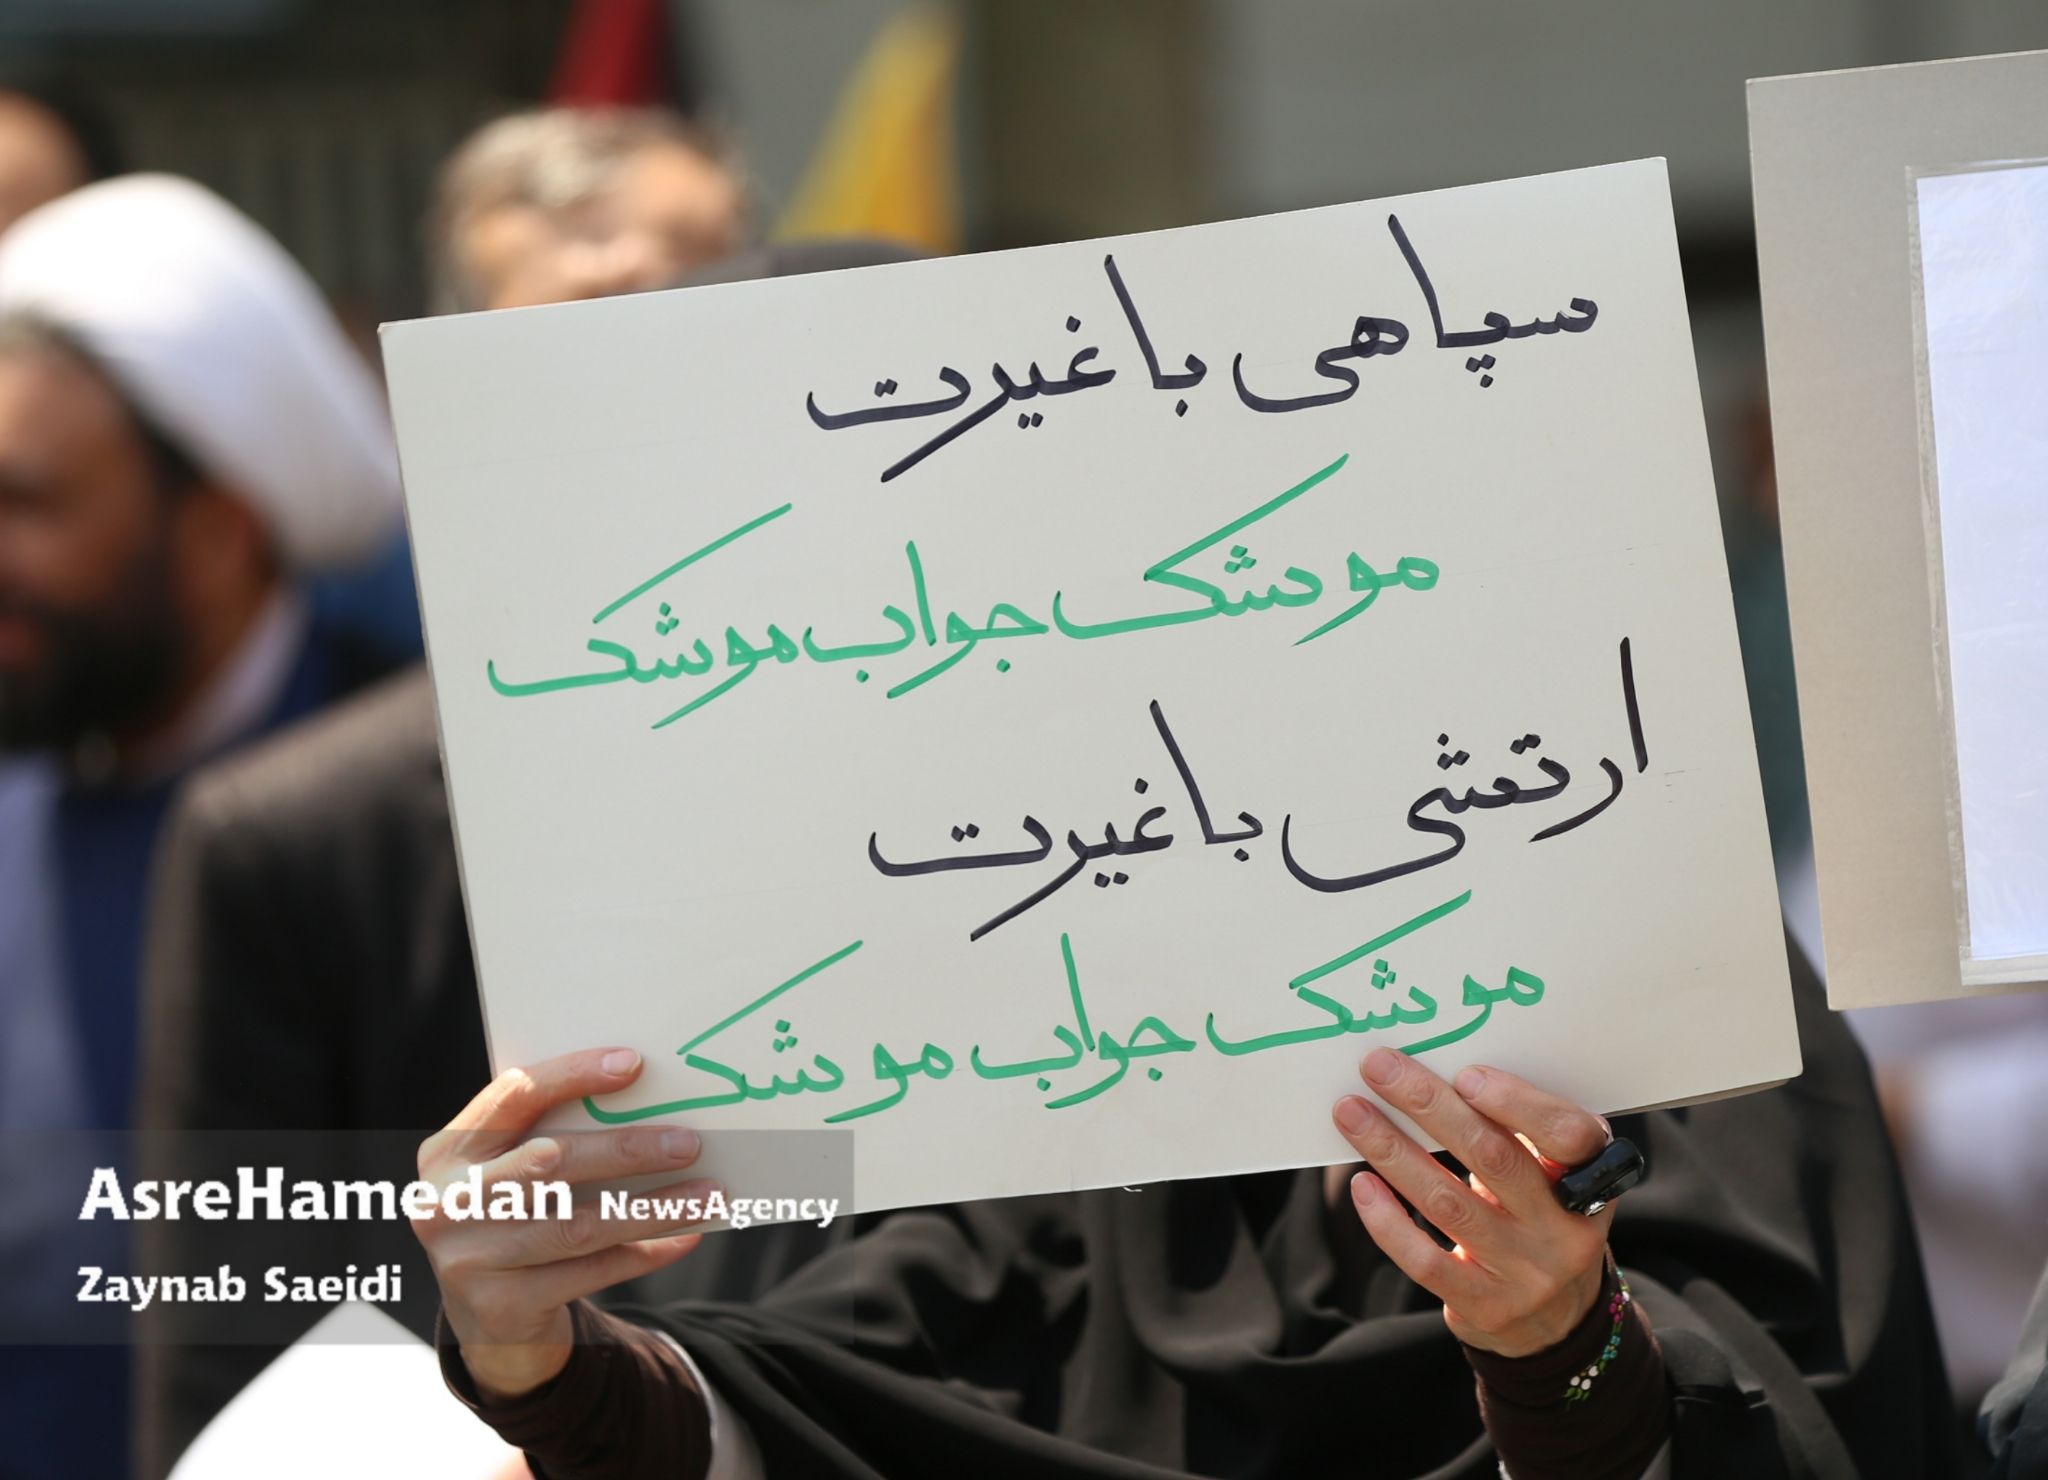 سپاهی باغیرت
موشک جواب موشک
ارتشی باغیرت
موشک جواب موشک
AsreHamedan NewsAgency
Zaynab Saeidi